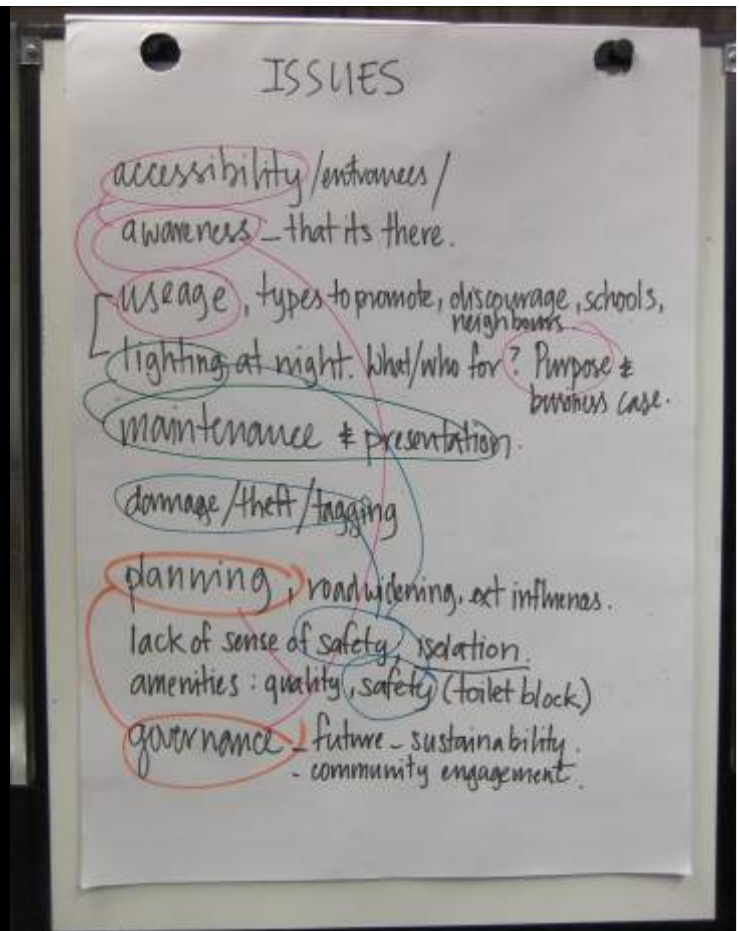 ISSUES
accessibility/entrances/
awareness - that its there.
useage, types to promote, discourage, schools,
neighbours
lighting at night. What/who for? Purpose &
business case.
maintenance & presentation.
damage/theft/tagging
planning, road widening, ext influences.
lack of sense of safety, isolation.
amenities: quality, safety (toilet block)
governance - future - sustainability.
- community engagement.